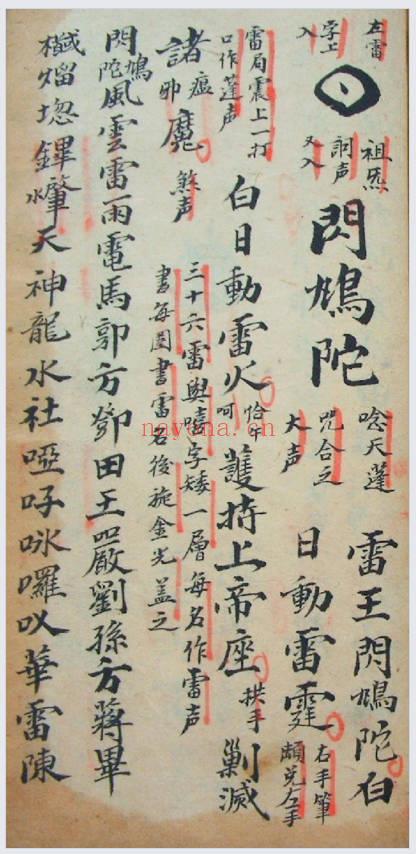 左雷
字上
入
祖炁
訶声
又入
閃鳩陀
唸天蓬
咒合之
大声
雷王閃鳩陀白
日動雷霆
右手筆
兌左手
雷局震上一打
口作蓬声
白日動雷火
呵
護持上帝座
拱手
剿滅
諸
瘟
邪
魔
煞声
三十六雷與嘻字矮一層每名作雷声
書每圈書雷名後施金光盖之
閃鳩陀風雲雷雨電馬郭方鄧田王嚴劉孫方蔣畢
天神龍水社啞吇咏囉叹華雷陳
nayona.cn